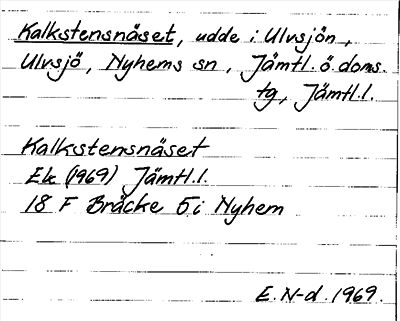 Kalkstensnäset, udde i Ulvsjön,
Ulvsjö, Nyhems sn, Jämtl. ö. doms.
tg, Jämtl.l.
Kalkstensnäset
Ek (1969) Jämtl.l.
18 F Bräcke 5 i Nyhem
E. N-d. 1969.